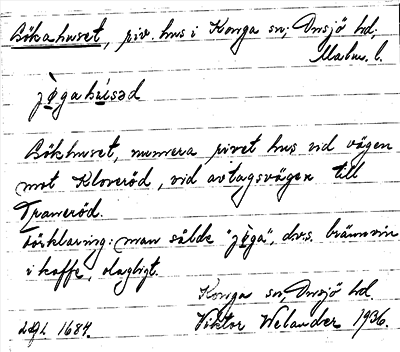 Gökahuset, riv. hus i Konga sn; Onsjö hd.
Malm. l.
jö̱gahu̱səd
Gökhuset, numera rivet hus vid vägen
mot Kloveröd, vid avtagsvägen till
Traneröd.
Förklaring: man sålde "jöga", dvs. brännvin
i kaffe, dagligt.
Konga sn; Onsjö hd.
1684. Viktor Welander 1936.